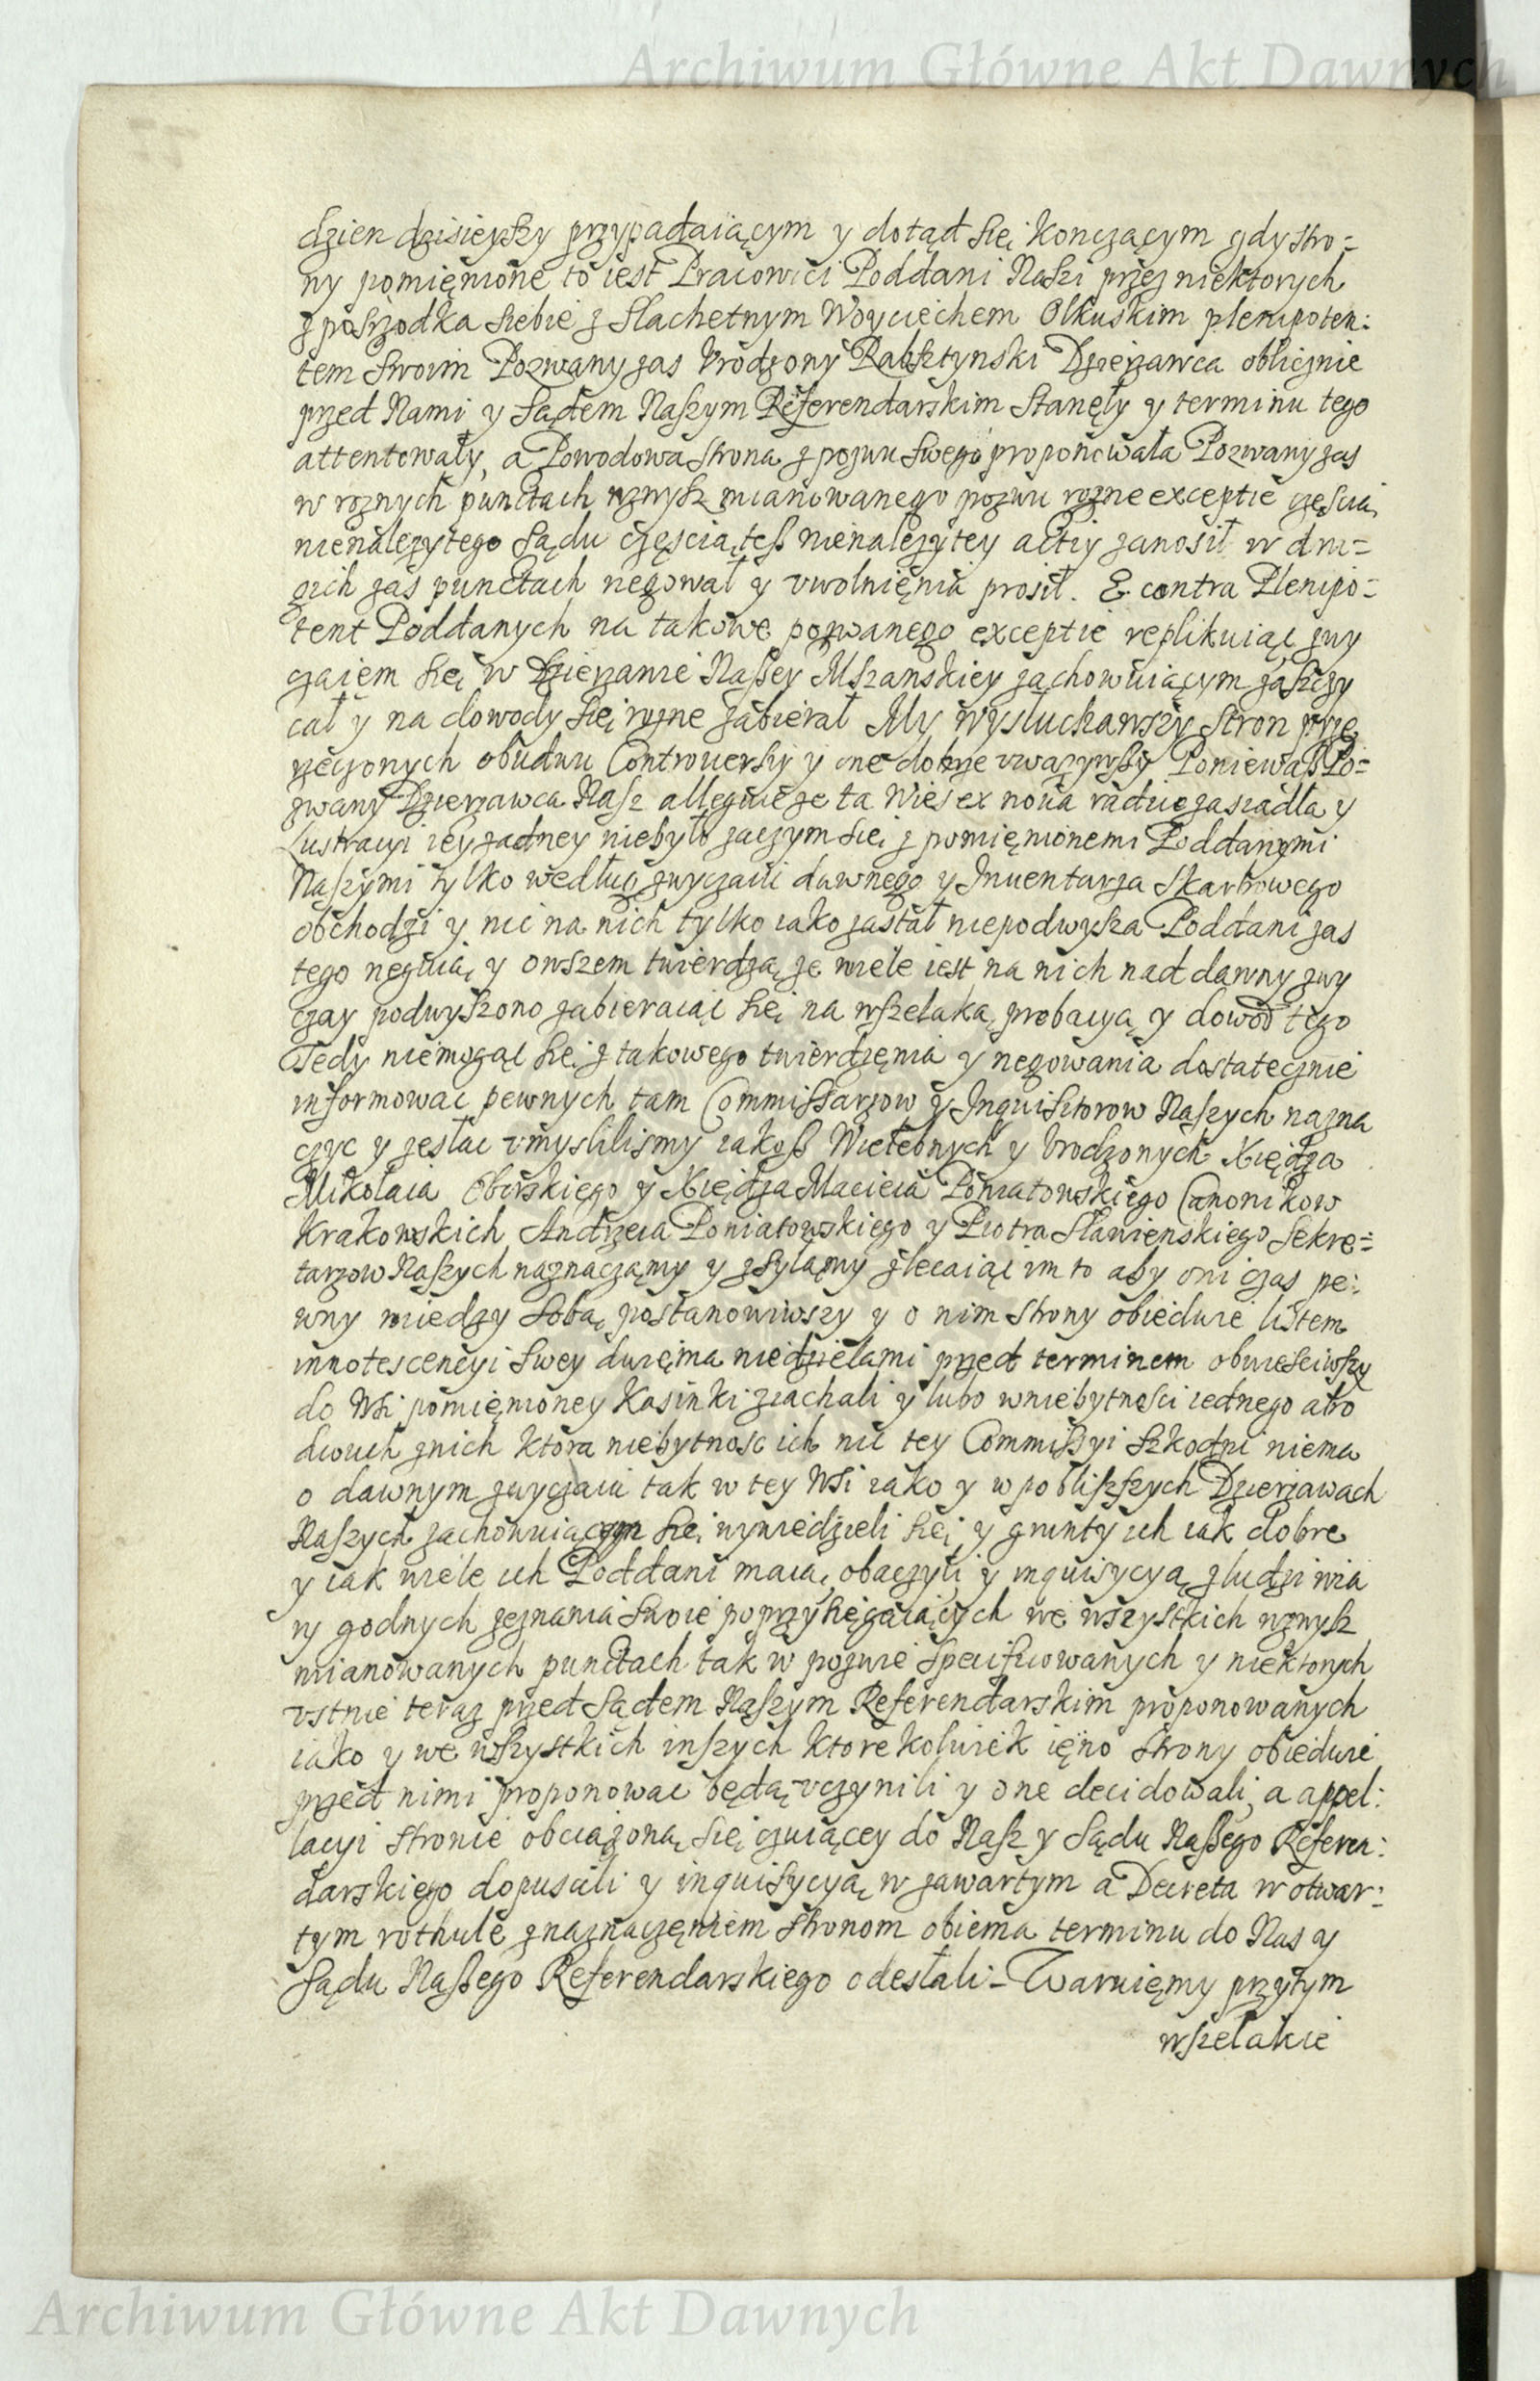 Archiwum Główne Akt Dawnych
dzien dzisieyszy przypadaiącym y dotąd się konczącym gdy stro=
ny pomięnione to iest Pracowici Poddani Naszi przez niektorych
z poszrodka siebie z Slachetnym Woyciechem Olkuskim plenipoten:
tem swoim Pozwany zas Vrodzony Rabsztynski Dzierzawca oblicznie
przed Nami y Sądem Naszym Referendarskim stanęły y terminu tego
attentowały, a Powodowa strona z pozwu swego proponowała Pozwany zas
w roznych punctach wzwysz mianowanego pozwu rozne exceptie częscią
nienalezytego Sądu częscią tesz nienalezytey actiy zanosił w dru=
gich zas punctach negował y vwolnięnia prosił. E contra Plenipo=
tent Poddanych na takowe pozwanego exceptie replikuiąc zwy
czaiem się w Dzierzawie Naszey Mszanskiey zachowuiącym zaszczy
cał y na dowody się rozne zabierał My wysłuchawszy stron prze
rzeczonych obudwu Controuersiy y one dobrze vwazywszy Poniewasz Po=
zwany Dzierzawca Nasz alleguie ze ta Wies ex noua radice zasiadła y
Lustracyi iey zadney niebyło zaczym się z pomięnionemi Poddanymi
Naszymi tylko według zwyczaiu dawnego y Inuentarza Skarbowego
obchodzi y nic na nich tylko iako zastał niepodwysza Poddani zas
tego neguią y owszem twierdzą ze wiele iest na nich nad dawny zwy
czay podwyszono zabieraiąc się na wszelaką probacyą y dowod tego
Tedy niemogąc się z takowego twierdzęnia y negowania dostatecznie
informowac pewnych tam Commissarzow y Inquisitorow Naszych nazna
czyc y zesłac vmyslilismy iakosz Wielebnych y Vrodzonych Xiędza
Mikołaia Oborskiego y Xiędza Macieia Poniatowskiego Canonikow
Krakowskich Andrzeia Poniatowskiego y Piotra Sławienskiego Sekre=
tarzow Naszych naznaczamy y zsyłamy zlecaiąc im to aby oni czas pe:
wny miedzy sobą postanowiwszy y o nim strony obiedwie listem
innotescencyi swey dwięma niedzielami przed terminem obwiesciwszy
do Wsi pomięnioney Kasinki ziachali y lubo w niebytnosci iednego abo
dwuch z nich ktora niebytnosc ich nic tey Commissyi szkodzic niema
o dawnym zwyczaiu tak w tey Wsi iako y w pobliszszych Dzierzawach
Naszych zachowuiącym się wywiedzieli się y grunty ich iak dobre
y iak wiele ich Poddani maią obaczyli y inquisycyą z ludzi wia
ry godnych zeznania swoie poprzysięgaiących we wszystkich wzwysz
mianowanych punctach tak w pozwie specificowanych y niektorych
vstnie teraz przed Sądem Naszym Referendarskim proponowanych
iako y we wszystkich inszych ktorekolwiek ięno strony obiedwie
przed nimi proponowac będą vczynili y one decidowali, a appel:
lacyi stronie obciązoną się czuiącey do Nasz y Sądu Naszego Referen:
darskiego dopuscili y inquisycyą w zawartym a Decreta w otwar:
tym rothule z naznaczęniem stronom obiema terminu do Nas y
Sądu Naszego Referendarskiego odesłali – Waruięmy przytym
wszelakie
Archiwum Główne Akt Dawnych